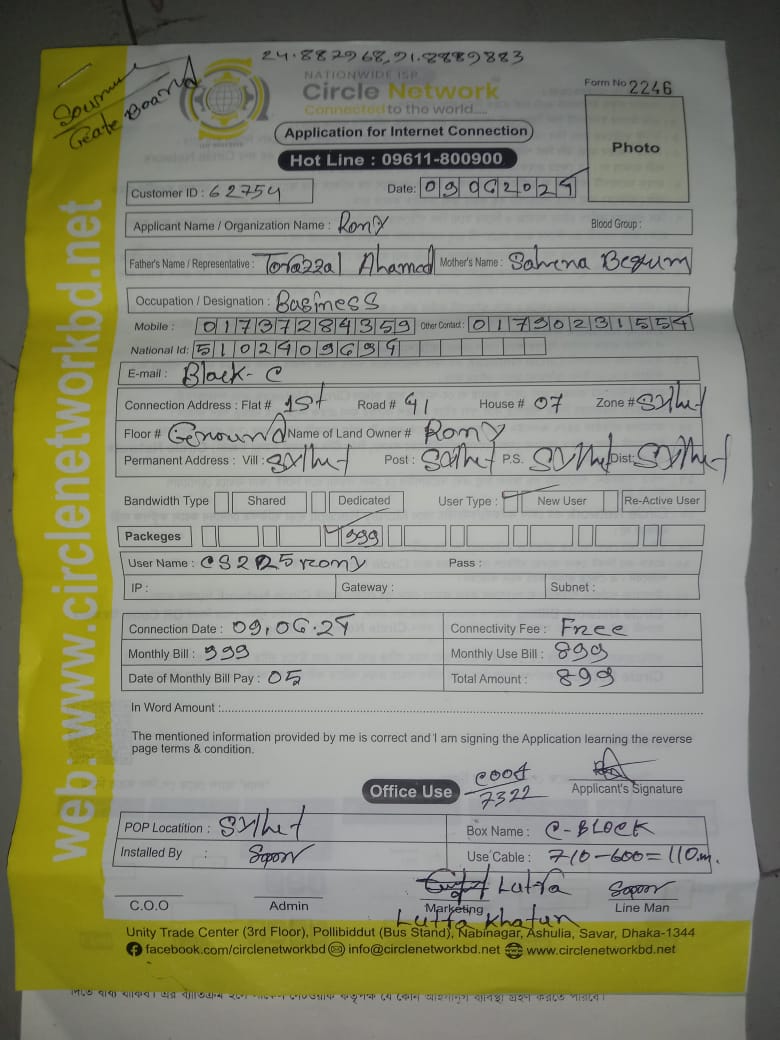 24.887968,91.8889883
NATIONWIDE ISP
Circle Network
Connected to the world.....
Form No 2246
Application for Internet Connection
Photo
Hot Line : 09611-800900
Customer ID : 62754
Date: 09062024
Applicant Name / Organization Name : Rony
Blood Group :
Father's Name / Representative : Tofazzal Ahamed Mother's Name : Sahena Begum
Occupation / Designation : Business
Mobile : 01737284359 Other Contact : 01730231554
National Id: 5102409694
E-mail : Block- C
Connection Address : Flat # 1st Road # 41 House # 07 Zone # Sylhet
Floor # Ground Name of Land Owner # Rony
Permanent Address : Vill : Sylhet Post : Sylhet P.S. Sylhet Dist: Sylhet
Bandwidth Type Shared Dedicated User Type : New User Re-Active User
Packeges 999
User Name : CS225Rony Pass :
IP : Gateway : Subnet :
Connection Date : 09.06.24 Connectivity Fee : Free
Monthly Bill : 999 Monthly Use Bill : 899
Date of Monthly Bill Pay : 05 Total Amount : 899
In Word Amount :
The mentioned information provided by me is correct and I am signing the Application learning the reverse
page terms & condition.
Office Use
7322
Applicant's Signature
POP Locatition : Sylhet Box Name : C-BLOCK
Installed By : Use Cable : 710-600=110m.
Lutfa
C.O.O Admin Marketing Line Man
Lutfa Khatun
Unity Trade Center (3rd Floor), Pollibiddut (Bus Stand), Nabinagar, Ashulia, Savar, Dhaka-1344
facebook.com/circlenetworkbd info@circlenetworkbd.net www.circlenetworkbd.net
web: www.circlenetworkbd.net